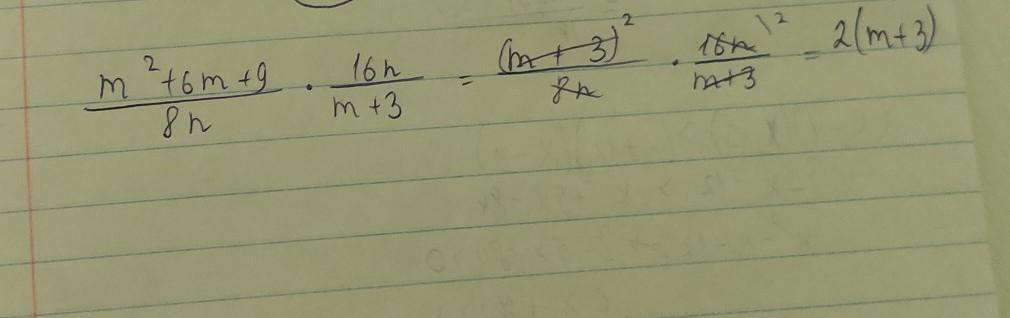 (m²+6m+9)/(8n) · (16n)/(m+3) = (m+3)²/(8n) · (16n\²)/(m+3) = 2(m+3)